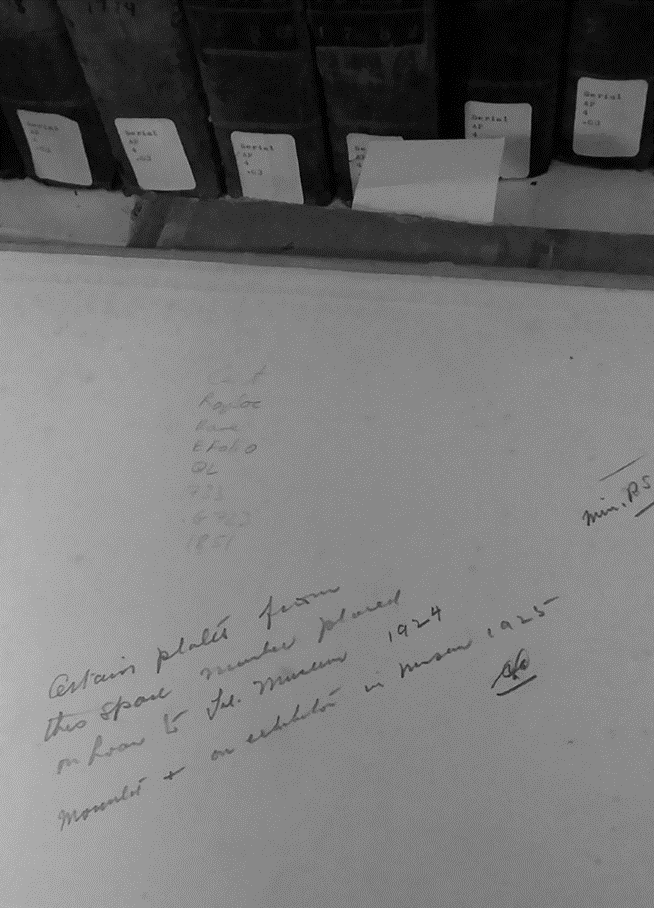 1914
Serial
AP
4
.G3
Serial
AP
4
.G3
Serial
AP
4
.G3
Se
4
Serial
AP
4
.G3
Serial
AP
4
.G3
Rare
Efolio
QL
1851
min. RS
Certain plates from
this spare number placed
on loan to Museum 1924
Mounted + on exhibition in museum 1925